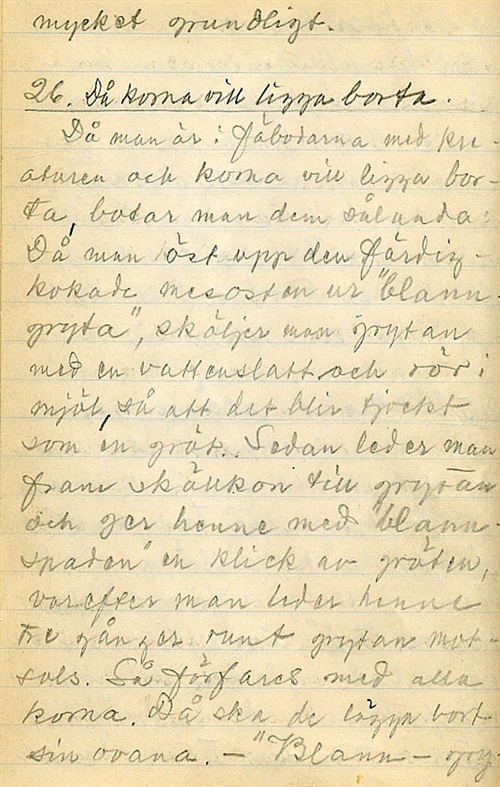 mycket grundligt.
26. Då korna vill ligga borta.
Då man är i fäbodarna med kre-
aturen och korna vill ligga bor-
ta, botar man dem sålunda:
Då man öst upp den färdig-
kokade mesosten ur "blann
gryta", sköljer man grytan
med en vattenslatt och rör i
mjöl, så att det blir tjockt
som en gröt. Sedan leder man
fram skällkon till grytan
och ger henne med "blann-
spaden" en klick av gröten,
varefter man leder henne
tre gånger runt grytan mot-
sols. Så förfares med alla
korna. Då ska de lägga bort
sin ovana. – "Blann – gry-